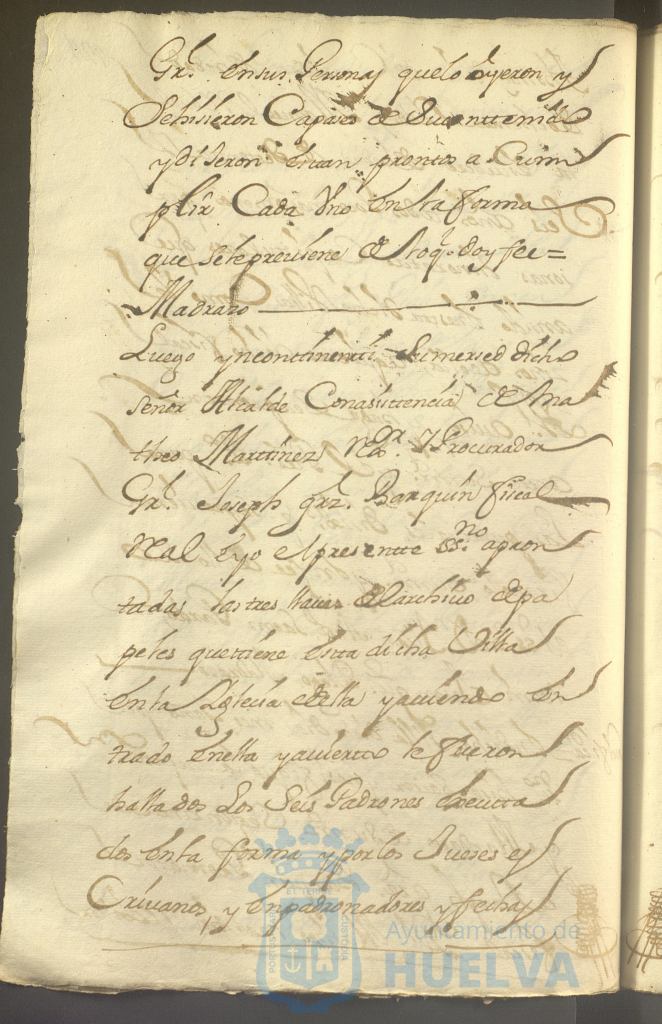 Grl. en sus Personas que lo oyeron y
Se hisieron Capases de Su conttenido
y dixeron estan promptos a Cum
plir Cada Vno en la forma
que se le preuiene de lo q. doy fee =
Madrazo
Luego yncontinenti Su mersed dicho
señor Alcalde Con asisttencia de Ma
theo Marttinez Rexor. y Procurador
Grl. Joseph grz. Barquin fiscal
Real e yo el presentte ssno. apron
tadas las tres llaues del archiuo de pa
peles que ttiene estta dicha Villa
en la Yglecia de ella y auiendo en
trado en ella y auierto le fueron
hallados Los Seis Padrones executta
dos en la forma y por los Jueses es
Criuanos, y Enpadronadores y fechas
Ayuntamiento de
HUELVA